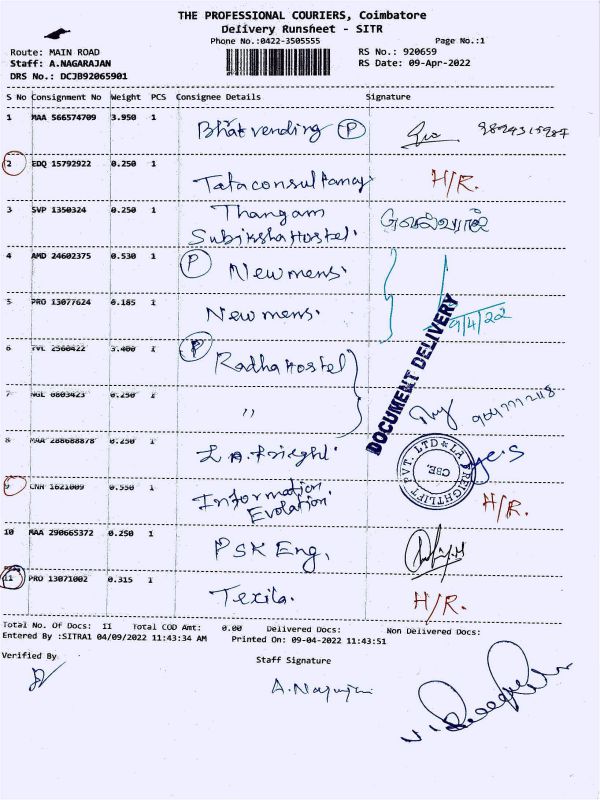 THE PROFESSIONAL COURIERS, Coimbatore
Delivery Runsheet - SITR
Phone No.:0422-3505555
Page No.:1
Route: MAIN ROAD
RS No.: 920659
Staff: A.NAGARAJAN
RS Date: 09-Apr-2022
DRS No.: DCJB92065901
S No Consignment No Weight PCS Consignee Details Signature
1 MAA 566574709 3.950 1 Bhatvending P
2 EDQ 15792922 0.250 1 Tataconsultancy H/R.
3 SVP 1350324 0.250 1 Thangam
Subiksha Hostel.
4 AMD 24602375 0.530 1 P Newmens.
5 PRO 13077624 0.185 1 Newmens. 9/4/22
6 TVL 2560422 3.400 1 P Radha Hostel
DOCUMENT DELIVERY
7 NGL 0803423 0.250 1 "
8 MAA 288688878 0.250 1 L.A.Frieght.
LA FREIGHTLIFT PVT. LTD
CBE.
9 CNH 1621009 0.550 1 Information
Evolation. H/R.
10 MAA 290665372 0.250 1 PSK Eng.
11 PRO 13071002 0.315 1 Texila. H/R.
Total No. Of Docs: 11 Total COD Amt: 0.00 Delivered Docs: Non Delivered Docs:
Entered By :SITRA1 04/09/2022 11:43:34 AM Printed On: 09-04-2022 11:43:51
Verified By
Staff Signature